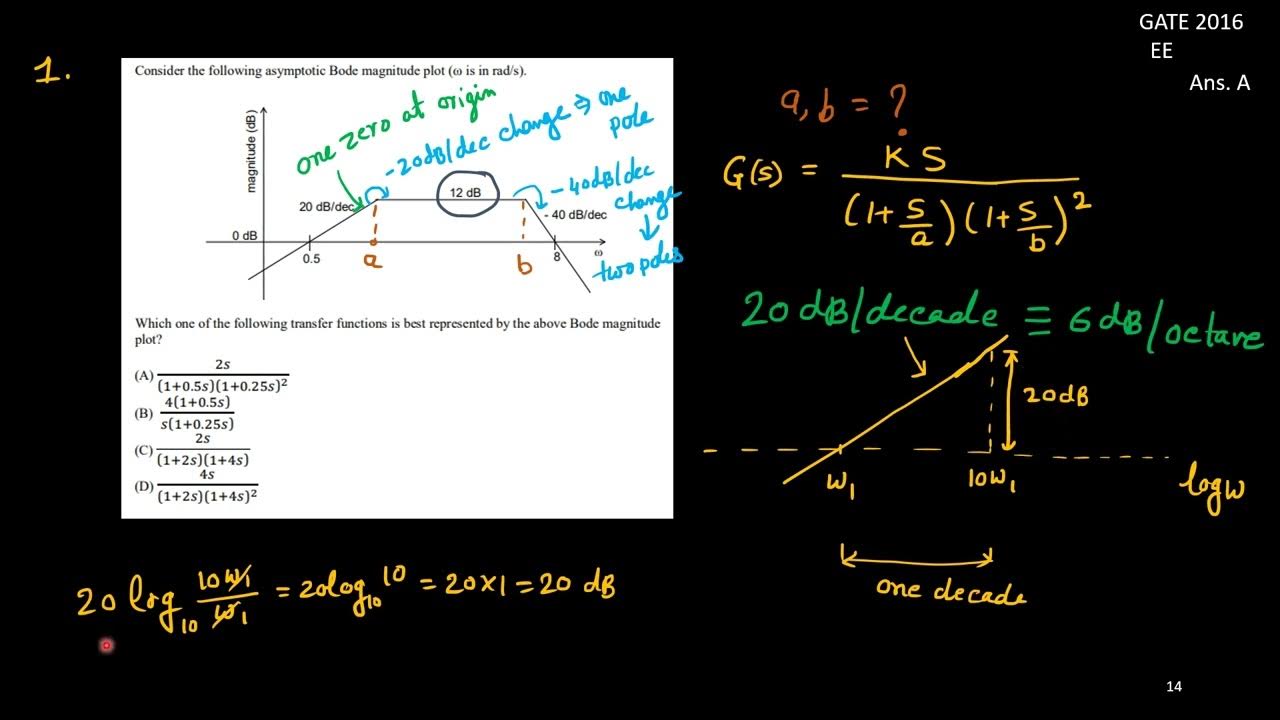 GATE 2016
EE
Ans. A
1.
Consider the following asymptotic Bode magnitude plot (ω is in rad/s).
magnitude (dB)
one zero at origin
-20dB/dec change ⇒ one
pole
20 dB/dec
12 dB
-40dB/dec
change
↓
two poles
- 40 dB/dec
0 dB
0.5
a
b
8
ω
Which one of the following transfer functions is best represented by the above Bode magnitude
plot?
(A) 2s/((1+0.5s)(1+0.25s)²)
(B) 4(1+0.5s)/(s(1+0.25s))
(C) 2s/((1+2s)(1+4s))
(D) 4s/((1+2s)(1+4s)²)
a, b = ?
G(s) = K S/((1+S/a)(1+S/b)²)
20 dB/decade ≡ 6 dB/octave
20dB
W₁
10W₁
log W
one decade
20 log₁₀ 10W₁/W₁ = 20log₁₀ 10 = 20×1 = 20 dB
14